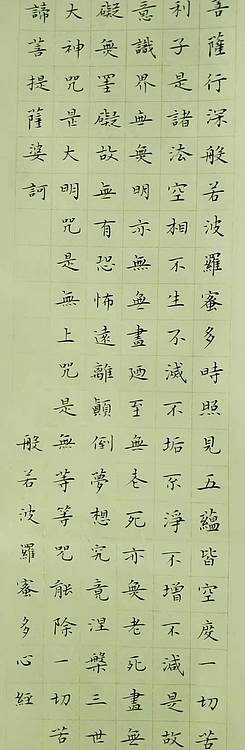 菩薩行深般若波羅蜜多時照見五蘊皆空度一切苦
利子是諸法空相不生不滅不垢不淨不增不減是故
意識界無無明亦無無盡廼至無老死亦無老死盡無
礙無罣礙故無有恐怖遠離顛倒夢想究竟涅槃三世
大神咒是大明咒是無上咒是無等等咒能除一切苦
諦菩提薩婆訶
般若波羅蜜多心經